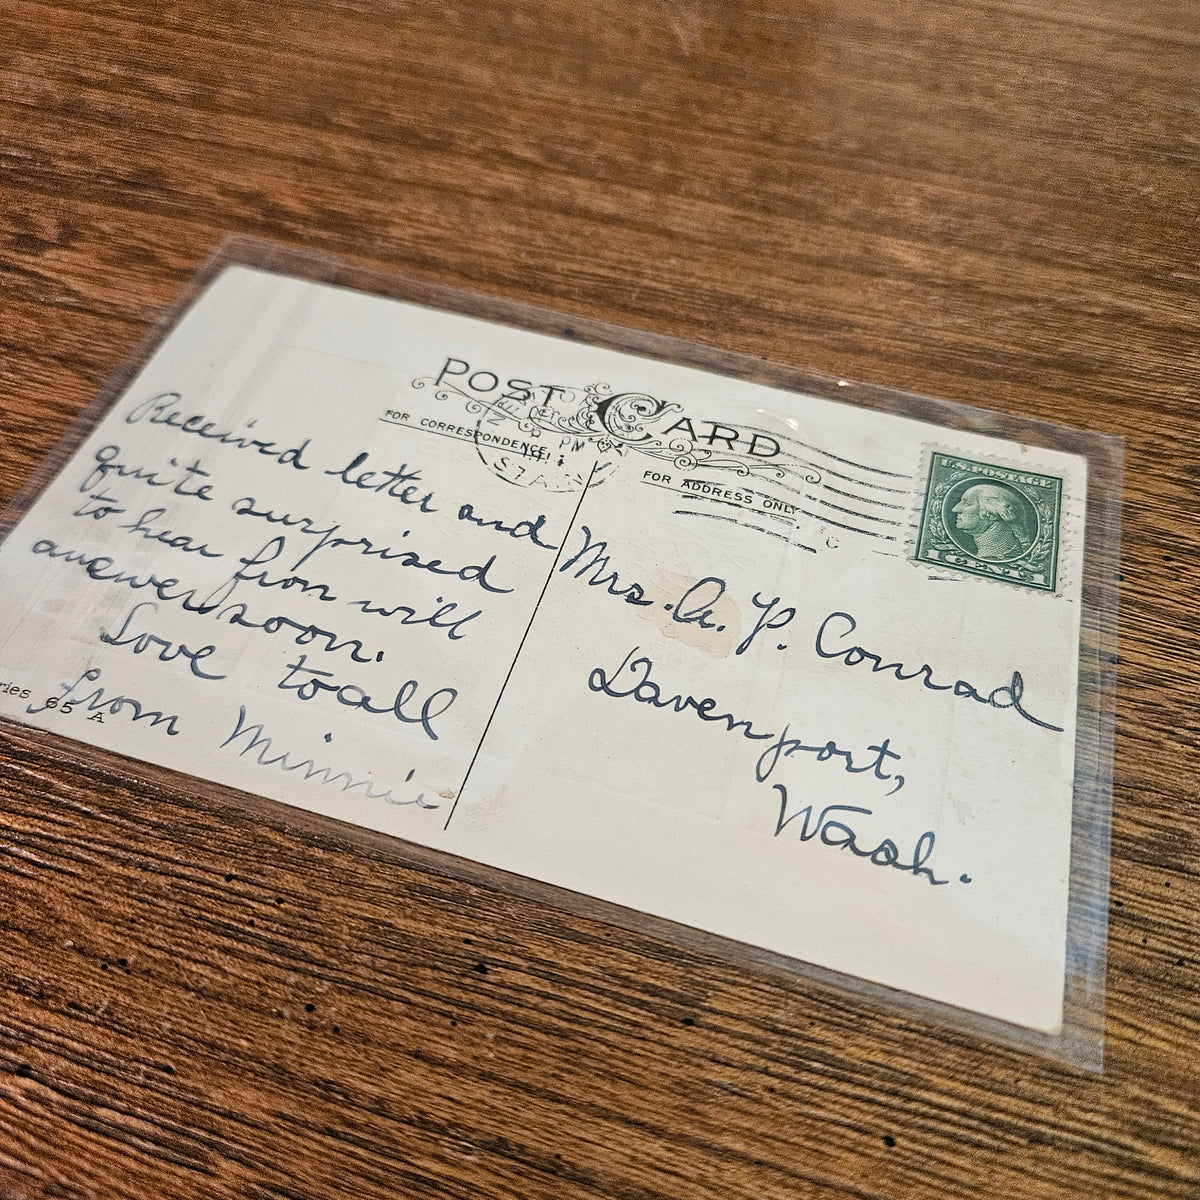 POST CARD
FOR CORRESPONDENCE
FOR ADDRESS ONLY
PM
U.S. POSTAGE
1 CENT 1
Received letter and
quite surprised
to hear from will
anewer soon.
Love to all
from Minnie
ries 65 A
Mrs. A. P. Conrad
Davenport,
Wash.